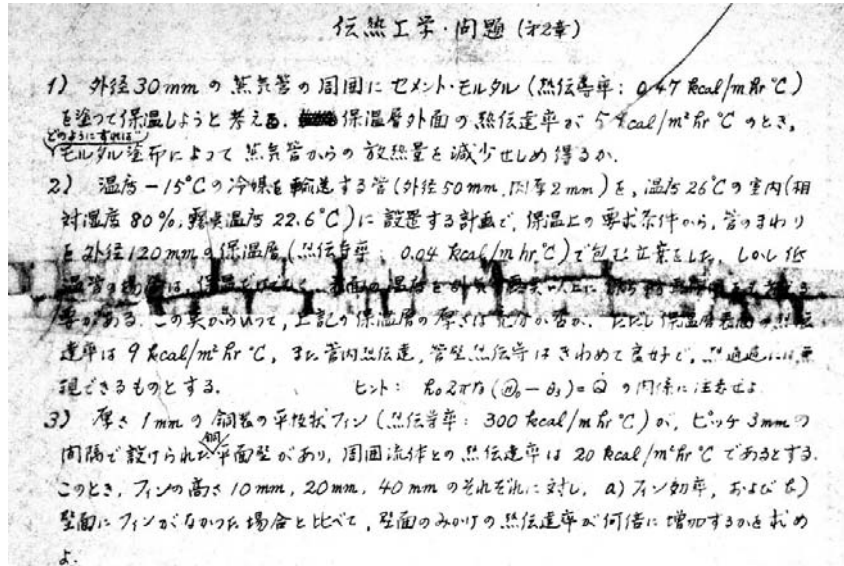 伝熱工学・問題 (第2章)
1) 外径30mmの蒸気管の周囲にセメント・モルタル (熱伝導率: 0.47 kcal/m hr °C)
を塗って保温しようと考える. 保温層外面の熱伝達率が 5 kcal/m² hr °C のとき,
どのようにすれば
モルタル塗布によって蒸気管からの放熱量を減少せしめ得るか.
2) 温度 -15°Cの冷媒を輸送する管 (外径50mm, 肉厚2mm) を, 温度26°Cの室内 (相
対湿度80%, 露点温度22.6°C) に設置する計画で, 保温上の要求条件から, 管のまわり
を外径120mmの保温層 (熱伝導率: 0.04 kcal/m hr °C) で包む立案をした. しかし低
温管の場合は, 保温 表面の温度を 露点以上に
要がある. この点からいって, 上記の保温層の厚さは充分か否か. ただし保温層表面の熱伝
達率は 9 kcal/m² hr °C, また管内熱伝達, 管壁熱伝導はきわめて良好で, 熱通過には無
視できるものとする. ヒント: の関係に注意せよ
3) 厚さ 1mm の銅製の平板状フィン (熱伝導率: 300 kcal/m hr °C) が, ピッチ 3mm の
間隔で設けられた銅平面壁があり, 周囲流体との熱伝達率は 20 kcal/m² hr °C であるとする.
このとき, フィンの高さ 10mm, 20mm, 40mm のそれぞれに対し, a) フィン効率, および b)
壁面にフィンがなかった場合と比べて, 壁面のみかけの熱伝達率が何倍に増加するかを求め
よ.